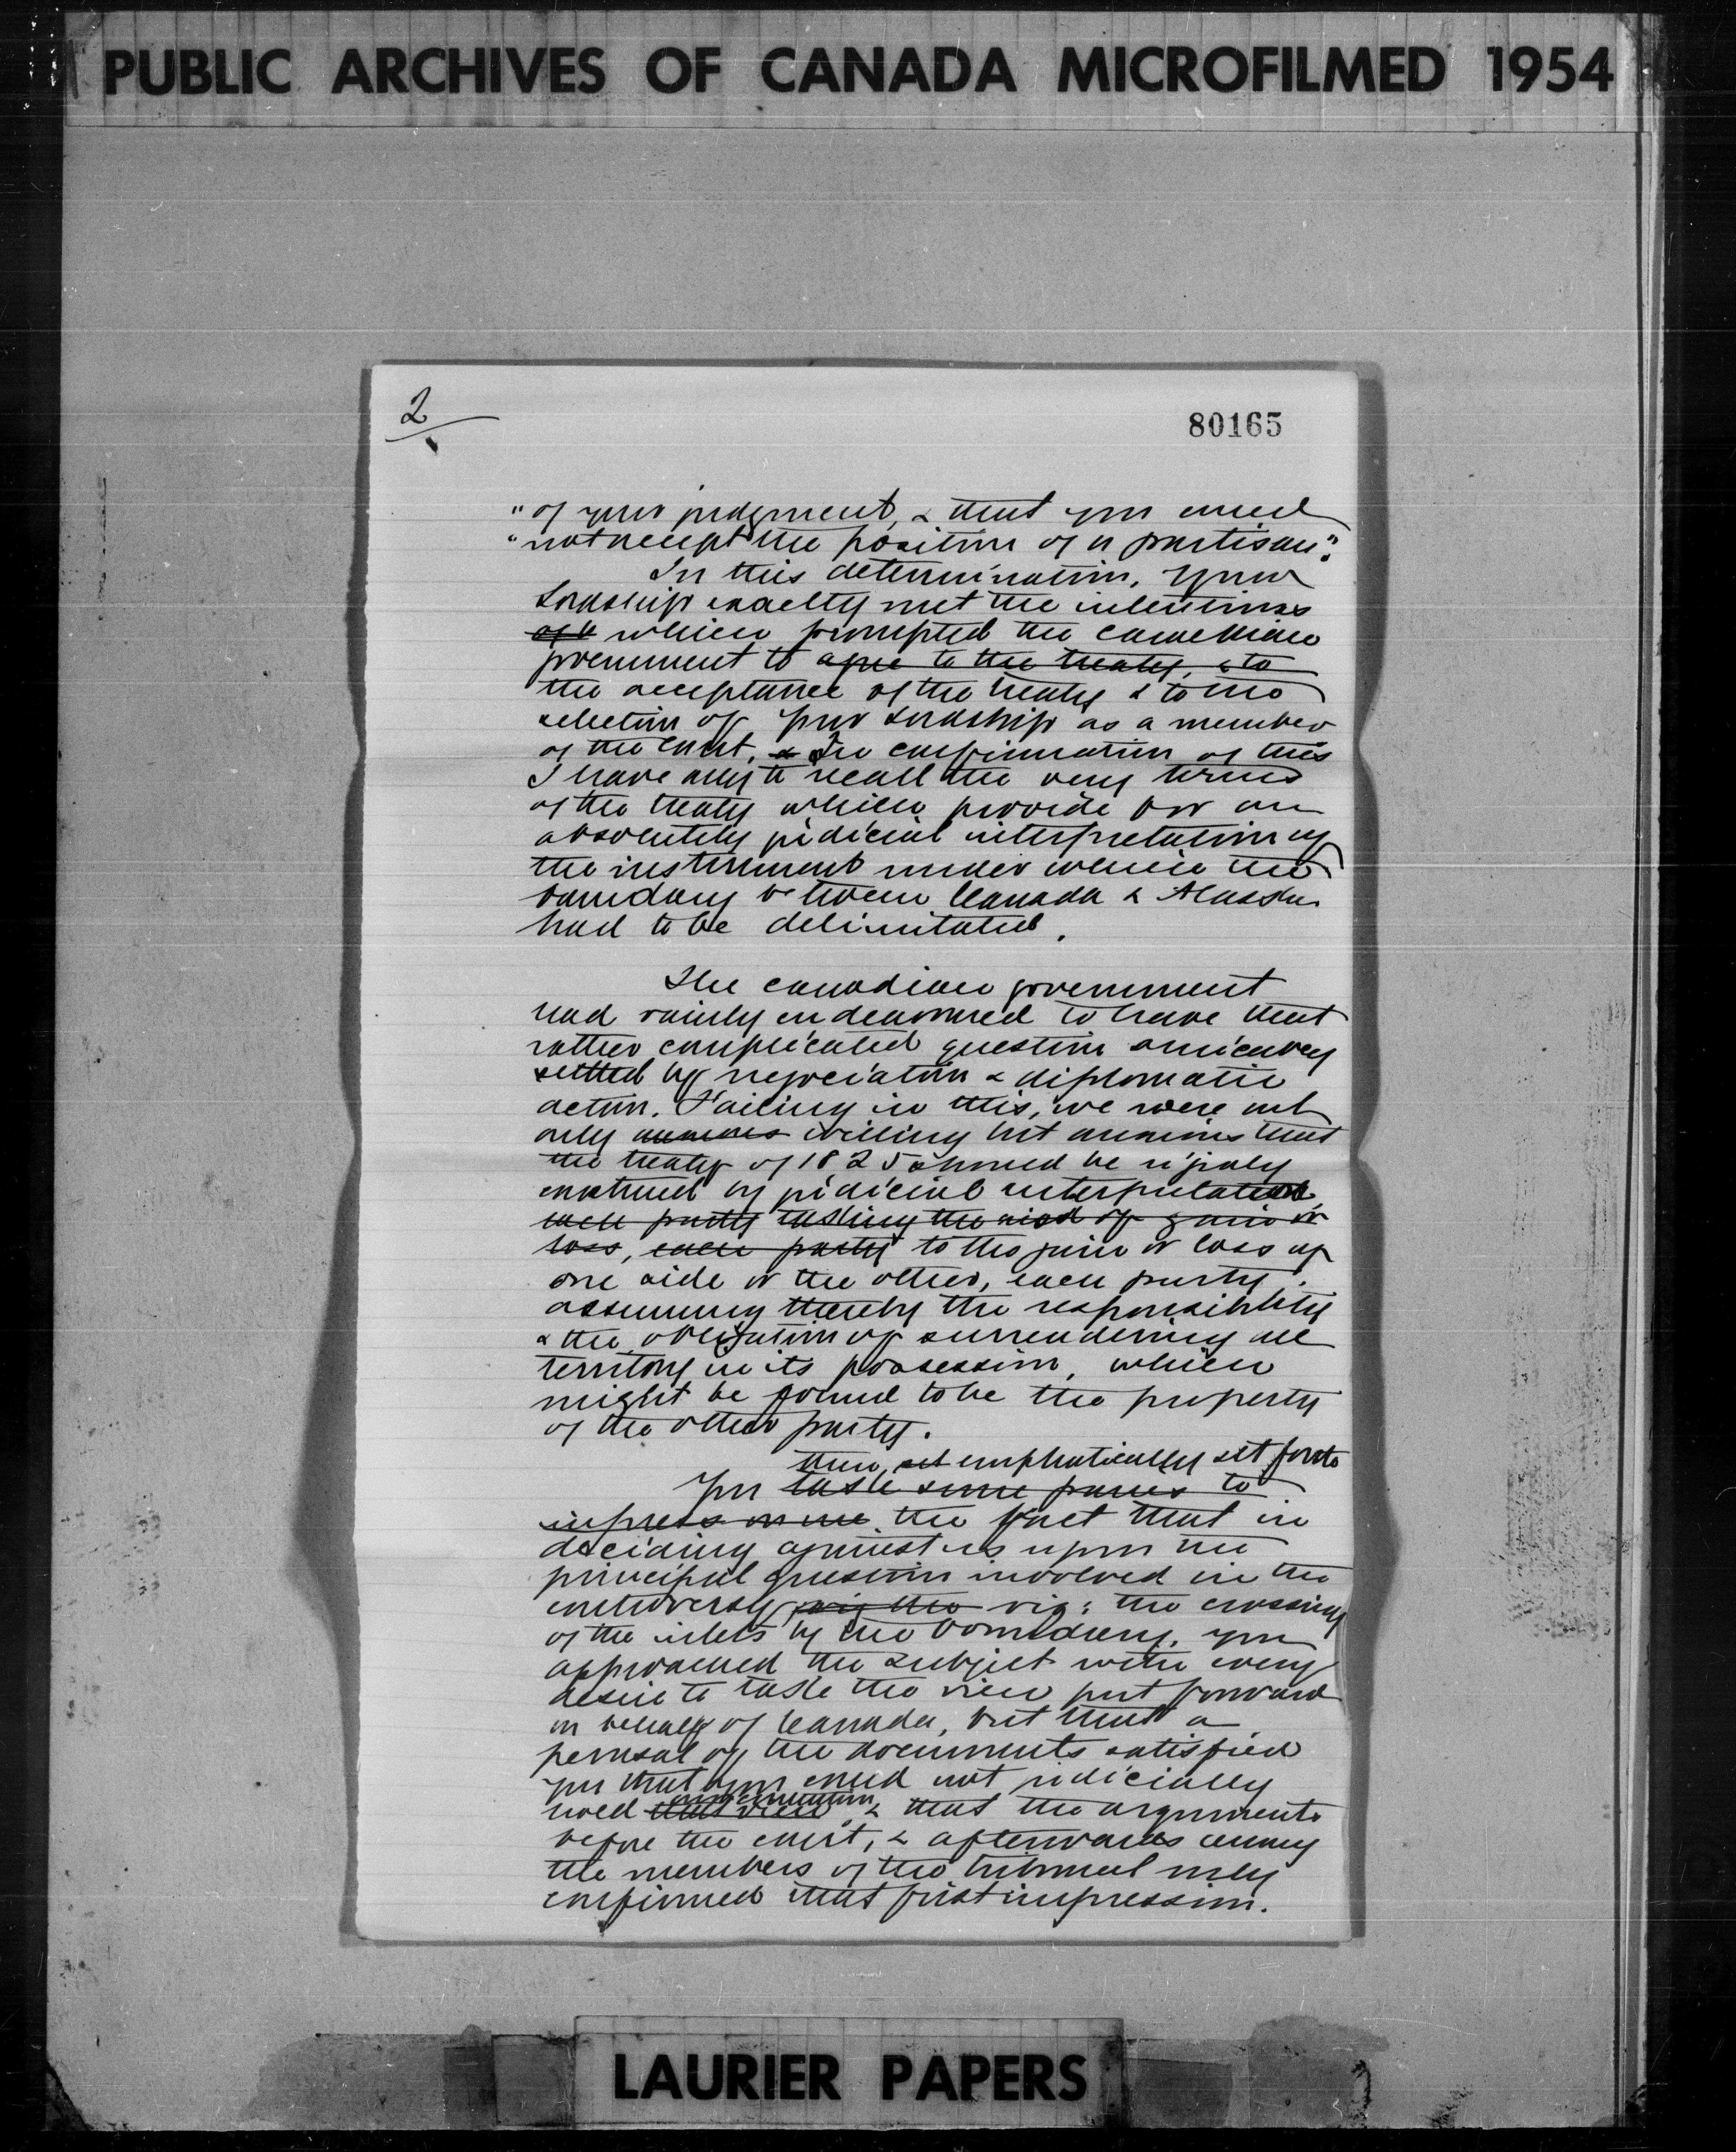 PUBLIC ARCHIVES OF CANADA MICROFILMED 1954
2
80165
"of your judgment, & that you could
"not accept the position of a partisan".
In this determination, your
Lordship exactly met the intentions
which prompted the canadian
government to agree to the treaty, & to
the acceptance of the treaty & to the
selection of your Lordship as a member
of the court, & In confirmation of this
I have only to recall the very terms
of the treaty which provide for an
absolutely judicial interpretation of
the instrument under which the
boundary between Canada & Alaska
had to be delimitated.
The canadian government
had vainly endeavoured to have that
rather complicated question amicably
settled by negociation & diplomatic
action. Failing in this, we were not
only anxious willing but anxious that
the treaty of 1825 should be rigidly
construed by judicial interpretation,
each party taking the risk of gain or
loss, each party to the gain or loss of
one side or the other, each party
assuming thereby the responsibility
& the obligation of surrendering all
territory in its possession, which
might be found to be the property
of the other party.
then, set emphatically set forth
You take some pains to
impress on me the fact that in
deciding against us upon the
principal question involved in the
controversy, viz the viz: the crossing
of the inlets by the boundary, you
approached the subject with every
desire to take the view put forward
on behalf of Canada, but that a
perusal of the documents satisfied
you that you could not judicially
our contention
hold that view, & that the arguments
before the court, & afterwards among
the members of the tribunal only
confirmed that first impression.
LAURIER PAPERS